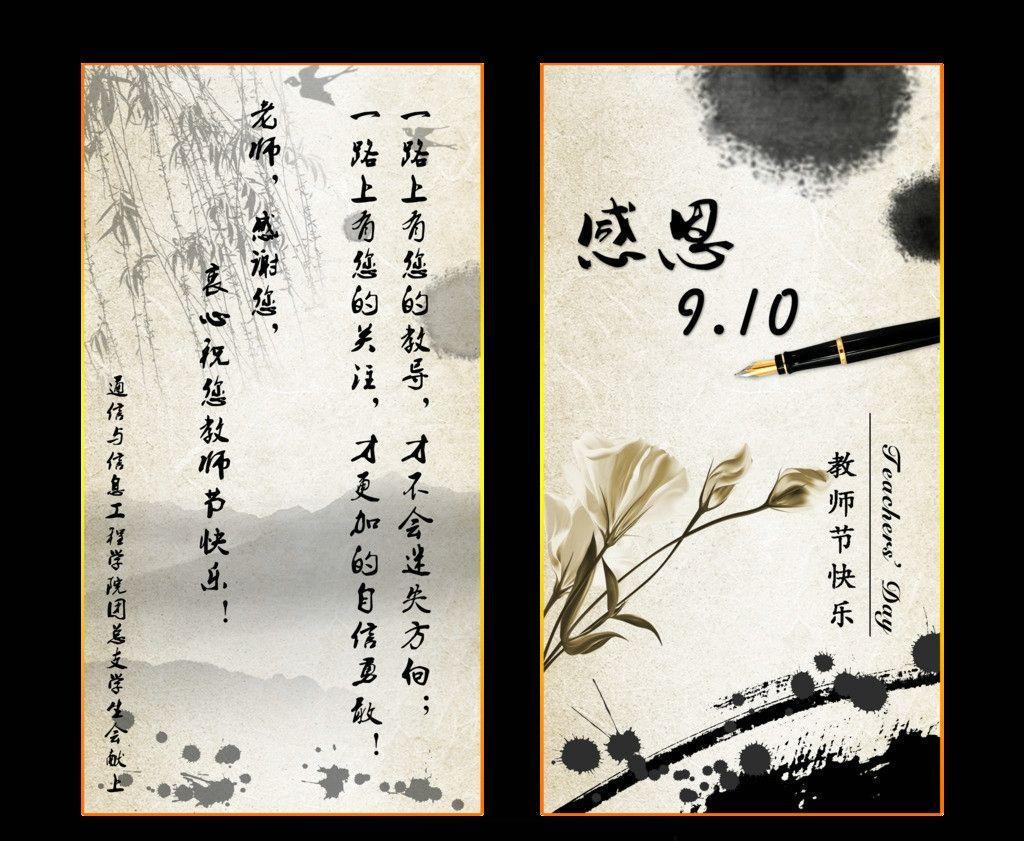 一路上有您的教导，才不会迷失方向；
一路上有您的关注，才更加的自信勇敢！
老师，感谢您，
衷心祝您教师节快乐！
通信与信息工程学院团总支学生会献上
感恩
9.10
Teachers' Day
教师节快乐